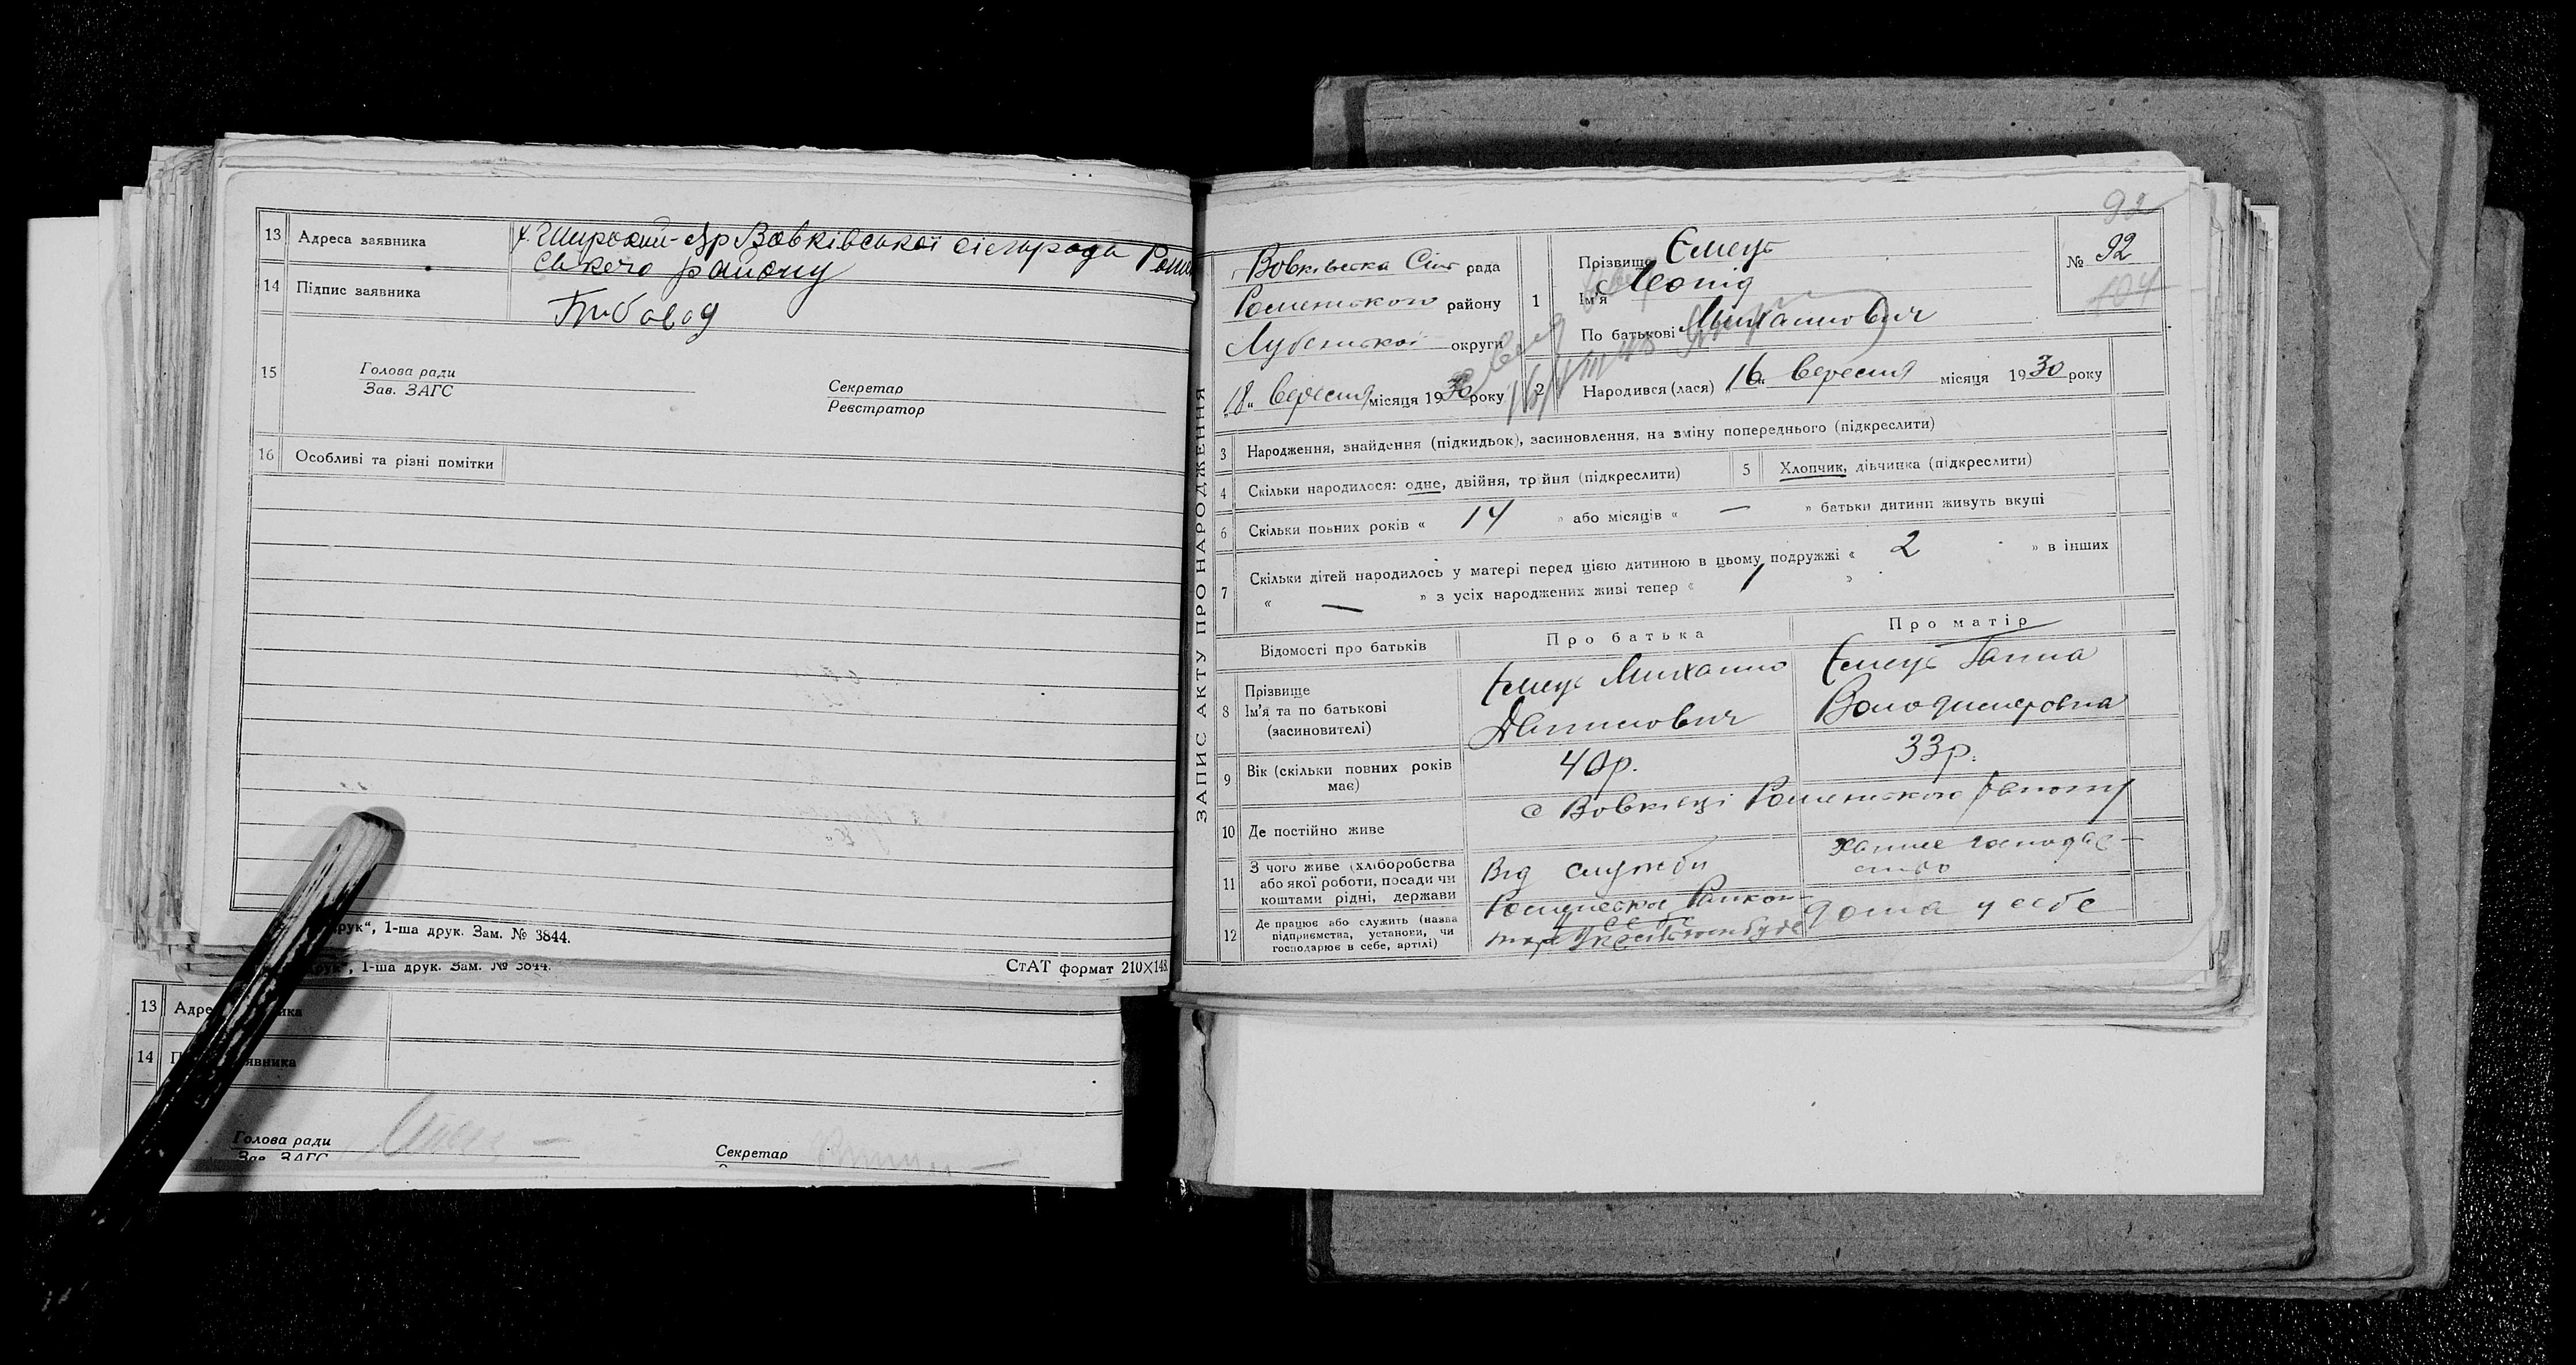 13 Адреса заявника
х. Широкий-Яр Вовківської сільради Ромен
ського району
14 Підпис заявника
15
Голова ради
Зав. ЗАГС
Секретар
Реєстратор
16 Особливі та різні помітки
друк“, 1-ша друк. Зам. № 3844.
друк“, 1-ша друк. Зам. № 3844.
СтАТ формат 210×148
13
14
Голова ради
Зав. ЗАГС
Секретар
ЗАПИС АКТУ ПРО НАРОДЖЕННЯ
92
Вовківська Сіль рада
Роменського району
Лубенської округи
„18„ вересня місяця 1930 року
1
Прізвище Ємець
Ім'я Леонід
По батькові Михайлович
№ 92
104
2 Народився (лася) 16„ вересня місяця 1930 року
3 Народження, знайдення (підкидьок), засиновлення, на зміну попереднього (підкреслити)
4 Скільки народилося: одне, двійня, трійня (підкреслити)
5 Хлопчик, дівчинка (підкреслити)
6 Скільки повних років « 14 » або місяців « — » батьки дитини живуть вкупі
7 Скільки дітей народилось у матері перед цією дитиною в цьому подружжі « 2 » в інших
« — » з усіх народжених живі тепер « 1 »
Відомості про батьків
Про батька
Про матір
8 Прізвище
Ім'я та по батькові
(засиновителі)
Ємець Михайло
Данилович
Ємець Ганна
Володимеровна
9 Вік (скільки повних років
має)
40р.
33р.
10 Де постійно живе
с Вовківці Роменського району
11 З чого живе (хліборобства
або якої роботи, посади чи
коштами рідні, держави
Від служби
Хатнє господар-
ство
12 Де працює або служить (назва
підприємства, установи, чи
господарює в себе, артілі)
дома у себе